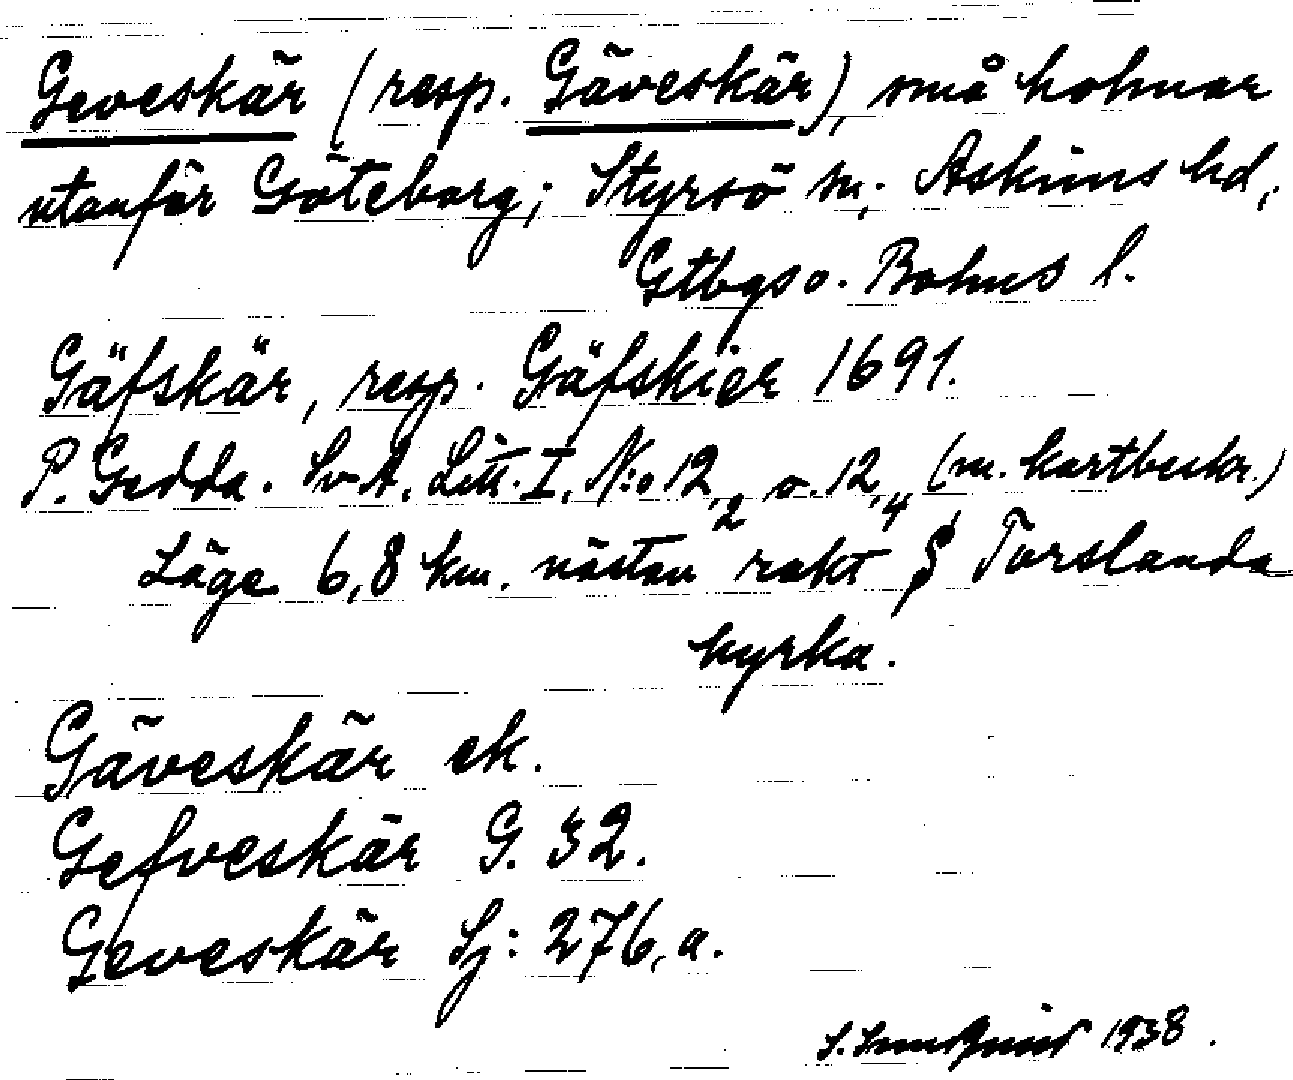 Geveskär (resp. Gäveskär), små holmar
utanför Göteborg; Styrsö sn, Askims hd,
Gtbgs o. Bohus l.
Gäfskär, resp. Gäfskier 1691.
P. Gedda. Sv. A. Litt. I. N:o 12,2 o. 12,4 (m. kartbeskr.)
Läge 6,8 km. nästan rakt S Torslanda
kyrka.
Gäveskär ek.
Gefveskär G. 32.
Geveskär Sj: 276,a.
1938.